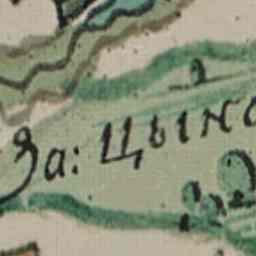 За: Цыно